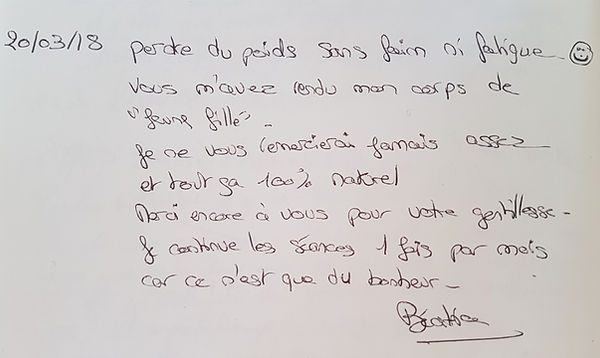 20/03/18 perdre du poids sans faim ni fatigue. ☺
Vous m'avez rendu mon corps de
"jeune fille".
Je ne vous remercierai jamais assez
et tout ça 100% naturel
Merci encore à vous pour votre gentillesse -
Je continue les séances 1 fois par mois
car ce n'est que du bonheur -
Béatrice